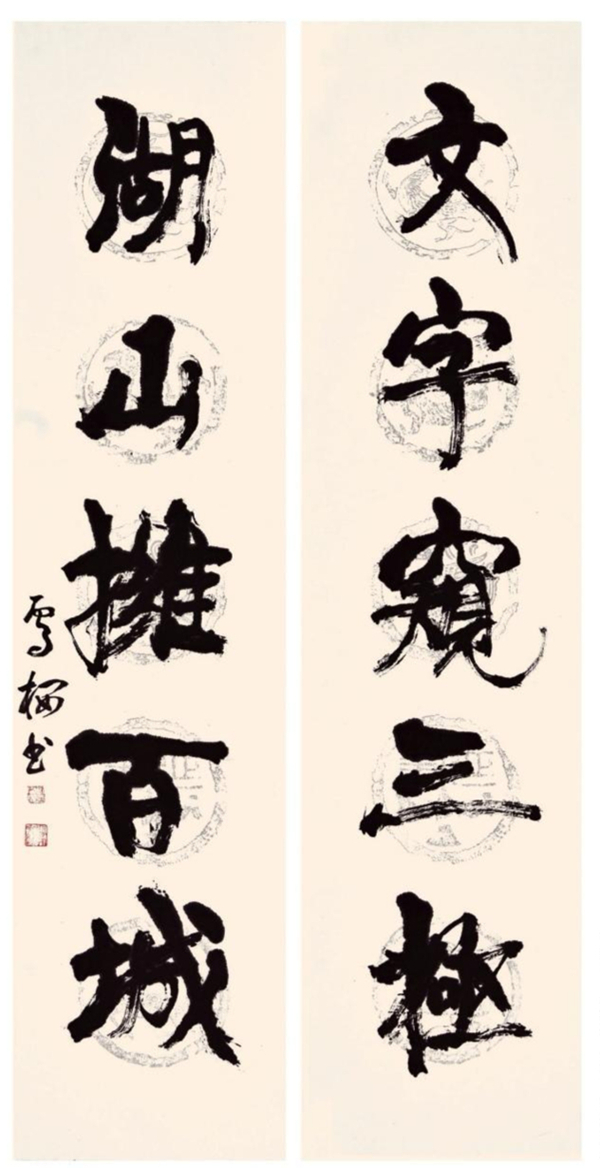 文字窺三極
湖山擁百城
雪梅书